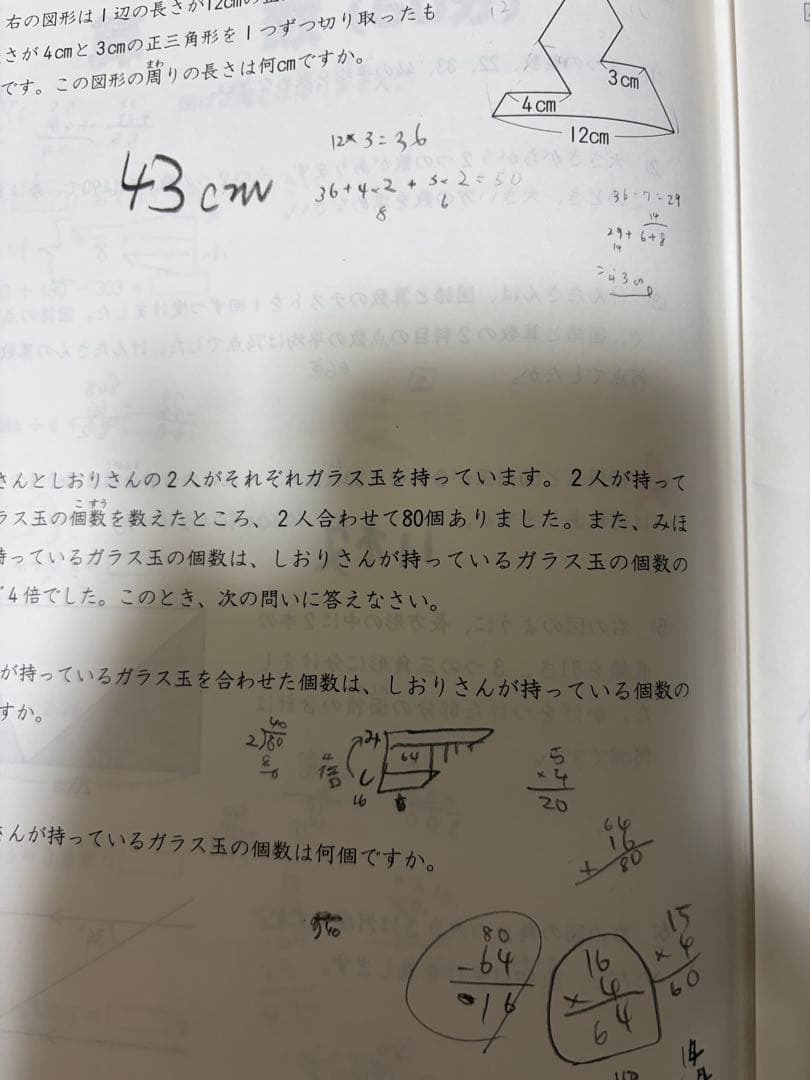 右の図形は1辺の長さが12cmの正
さが4cmと3cmの正三角形を1つずつ切り取ったも
です。この図形の周りの長さは何cmですか。
まわ
4cm
3cm
12cm
12×3=36
43cm
36+4×2+3×2=50
8
6
36-7=29
14
29+6+8
14
=43cm
さんとしおりさんの2人がそれぞれガラス玉を持っています。2人が持って
ラス玉の個数を数えたところ、2人合わせて80個ありました。また、みほ
こすう
持っているガラス玉の個数は、しおりさんが持っているガラス玉の個数の
4倍でした。このとき、次の問いに答えなさい。
が持っているガラス玉を合わせた個数は、しおりさんが持っている個数の
すか。
40
2)80
8
0
倍
64
16
5
×4
20
さんが持っているガラス玉の個数は何個ですか。
64
16
+80
80
-64
16
16
×4
64
15
×4
60